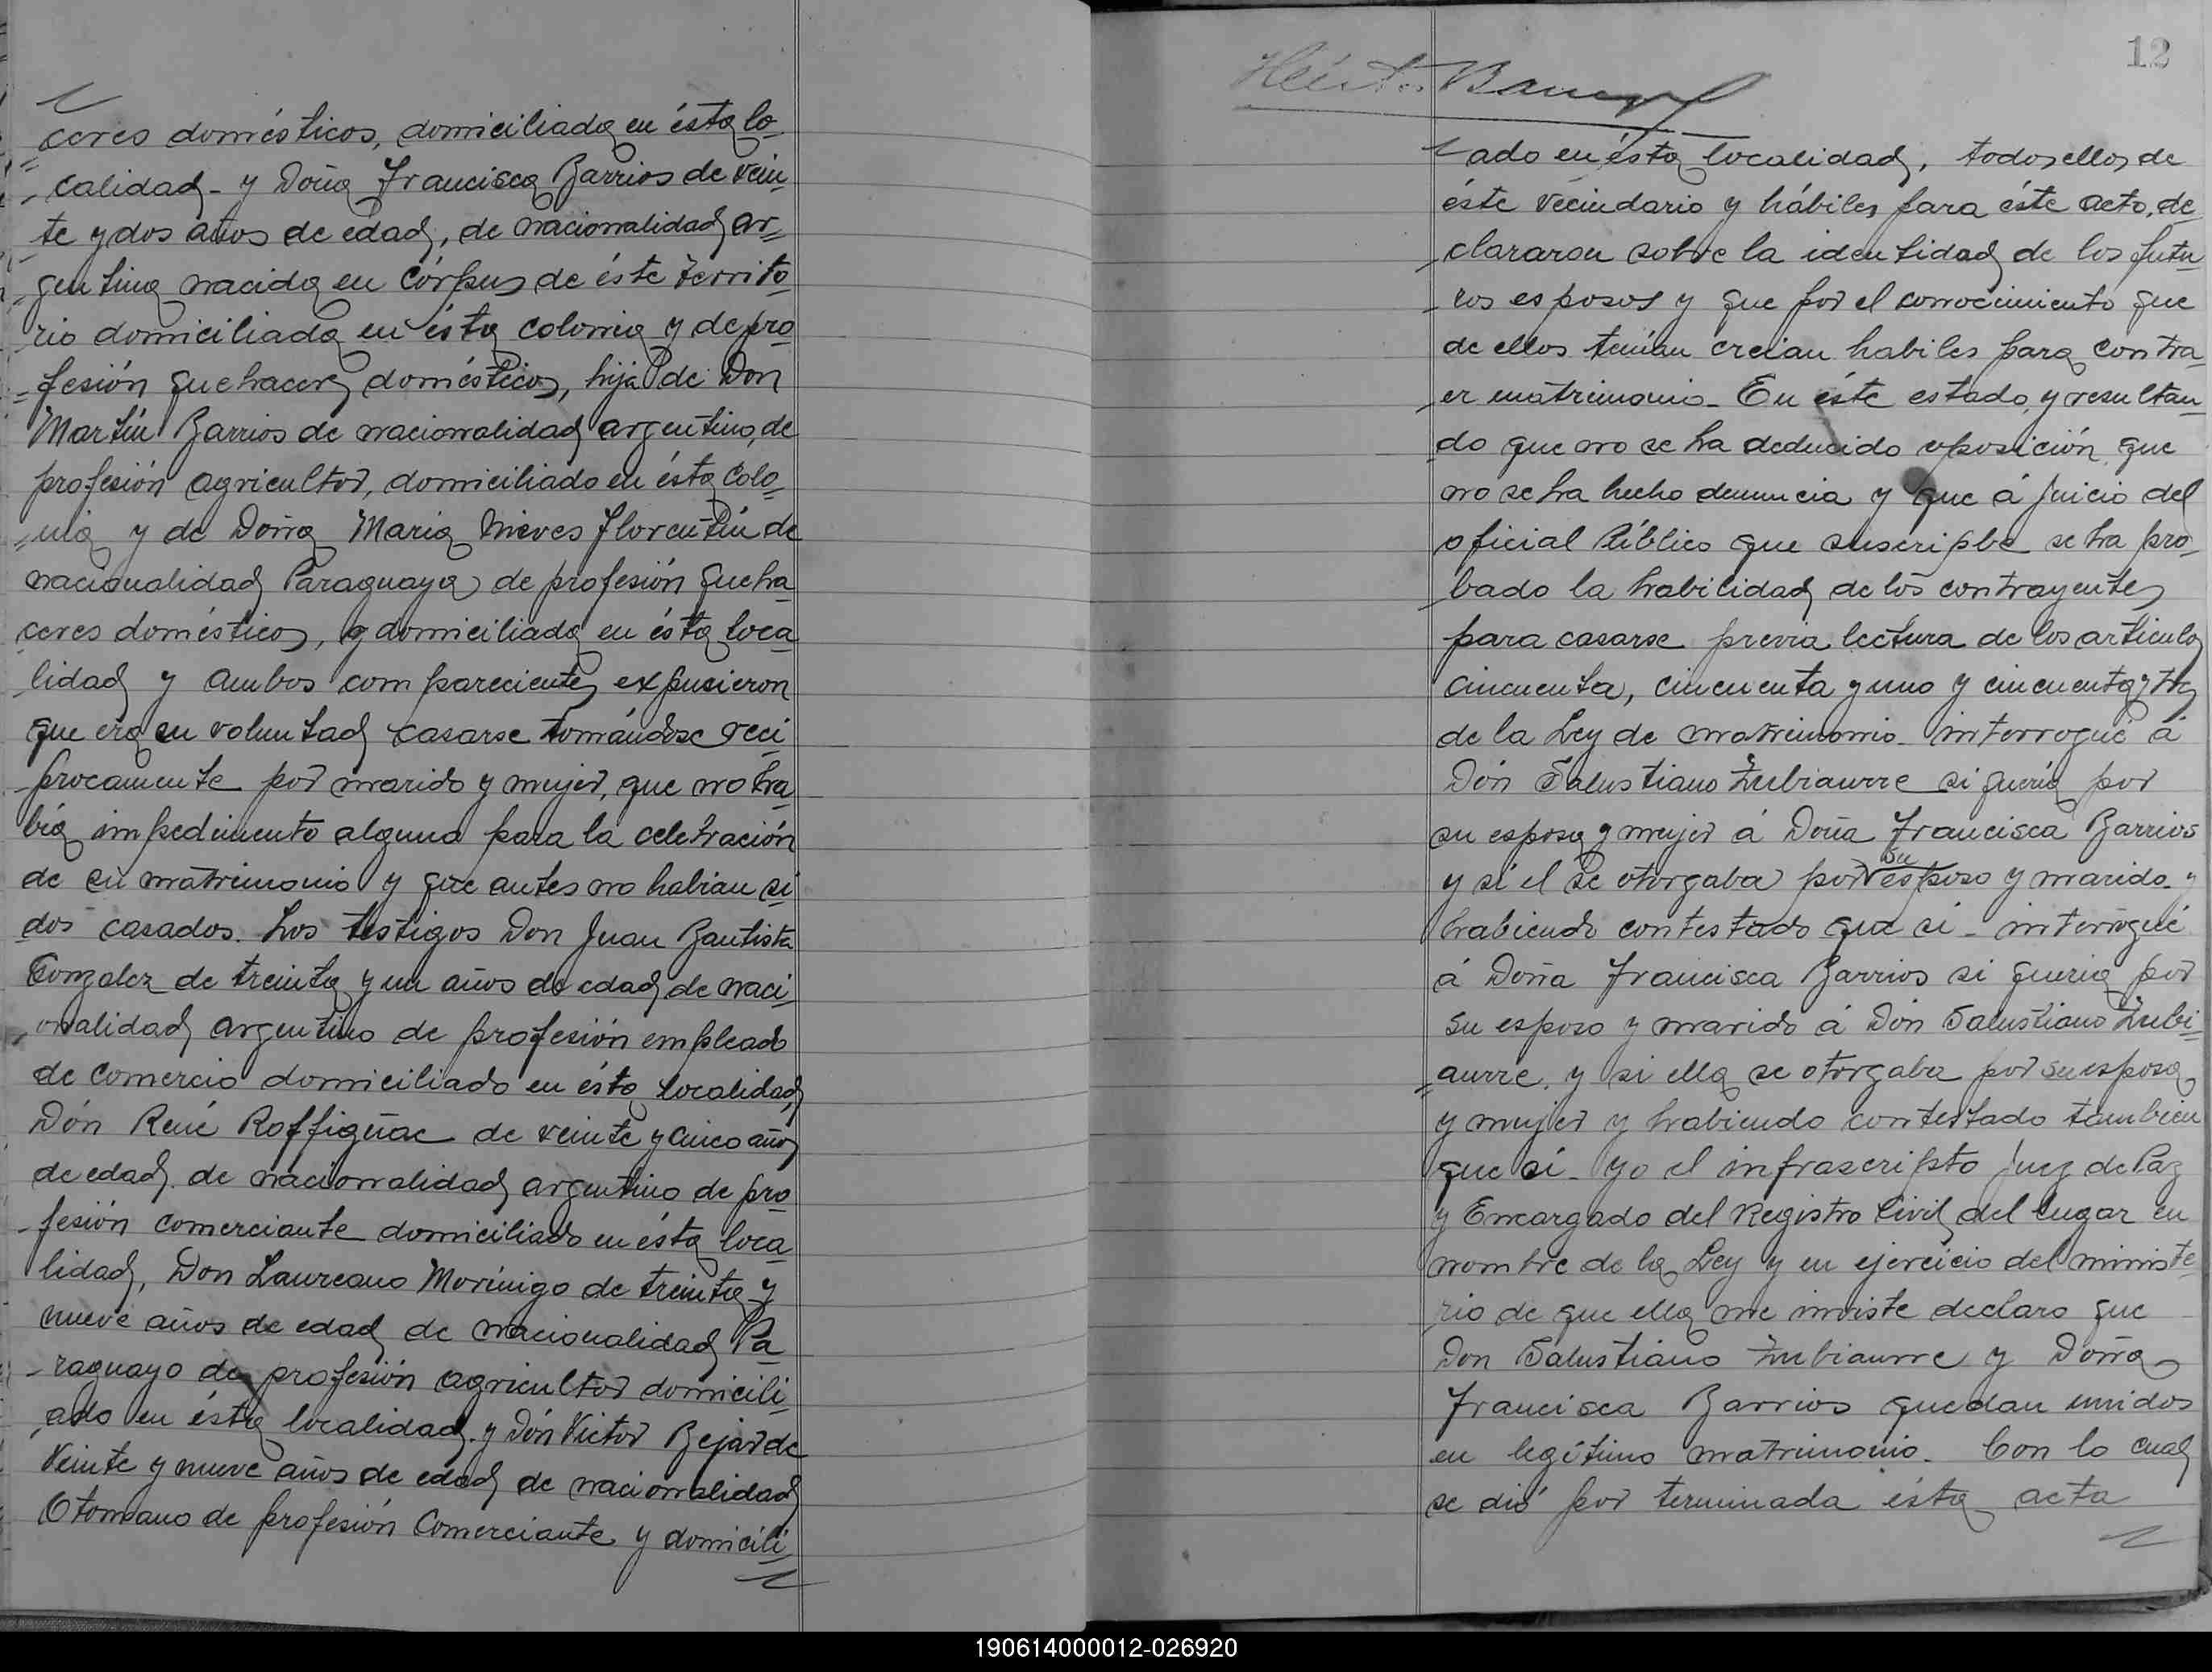 ceres domésticos, domiciliada en ésta lo-
calidad - y Doña Francisca Barrios de vein-
te y dos años de edad, de nacionalidad ar-
gentina nacida en Córpus de éste territo-
rio domiciliada en ésta colonia y de pro-
fesión quehaceres domésticos, hija de Don
Martín Barrios de nacionalidad argentino, de
profesión agricultor, domiciliado en ésta Colo-
nia y de Doña Maria Nieves Florentín de
nacionalidad Paraguaya de profesión queha-
ceres domésticos, y domiciliada en ésta loca-
lidad y ambos comparecientes expusieron
que era su voluntad casarse tomándose reci-
procamente por marido y mujer, que no ha-
bía impedimento alguno para la celebración
de su matrimonio y que antes no habian si-
dos casados. Los testigos Don Juan Bautista
Gonzalez de treinta y un años de edad de naci-
onalidad argentino de profesión empleado
de comercio domiciliado en ésta localidad,
Dón René Roffignac de veinte y cinco años
de edad de nacionalidad argentino de pro-
fesión comerciante domiciliado en ésta loca-
lidad, Don Laureano Morínigo de treinta y
nueve años de edad de nacionalidad Pa-
raguayo de profesión agricultor domicili-
ado en ésta localidad y Dón Victor Bejar de
veinte y nueve años de edad de nacionalidad
Otomano de profesión Comerciante y domicili-
12
ado en ésta localidad, todos ellos de
éste vecindario y hábiles para éste acto, de-
clararon sobre la identidad de los futu-
ros esposos y que por el conocimiento que
de ellos tenían creían habiles para contra-
er matrimonio - En éste estado, y resultan-
do que no se ha deducido oposición, que
no se ha hecho denuncia y que á juicio del
oficial Público que suscripbe se ha pro-
bado la habilidad de los contrayentes
para casarse previa lectura de los articulos
cincuenta, cincuenta y uno y cincuenta y tres
de la Ley de matrimonio - interrogué á
Dón Salustiano Zubiaurre si quería por
su esposa y mujer á Doña Francisca Barrios
y si el se otorgaba por su esposo y marido y
habiendo contestado que si - interrogué
á Doña Francisca Barrios si queria por
su esposo y marido á Dón Salustiano Zubi-
aurre, y si ella se otorgaba por su esposa
y mujer y habiendo contestado tambien
que sí - yo el infrascripto Juez de Paz
y Encargado del Registro Civil del lugar en
nombre de la Ley y en ejercicio del ministe-
rio de que ella me inviste declaro que
Don Salustiano Zubiaurre y Doña
Francisca Barrios quedan unidos
en legítimo matrimonio - Con lo cual
se dió por terminada ésta acta
190614000012-026920